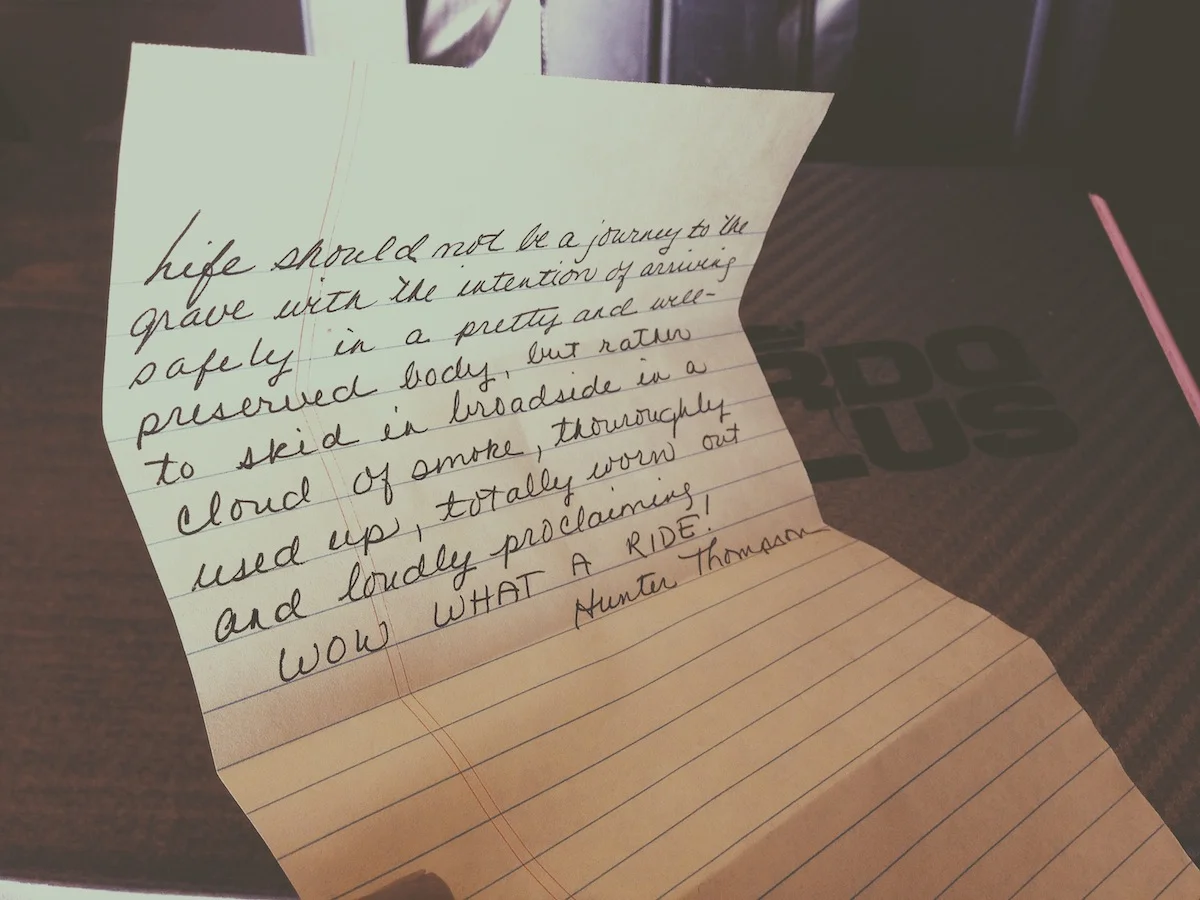 Life should not be a journey to the
grave with the intention of arriving
safely in a pretty and well-
preserved body, but rather
to skid in broadside in a
cloud of smoke, thouroughly
used up, totally worn out
and loudly proclaiming,
WOW WHAT A RIDE!
Hunter Thompson